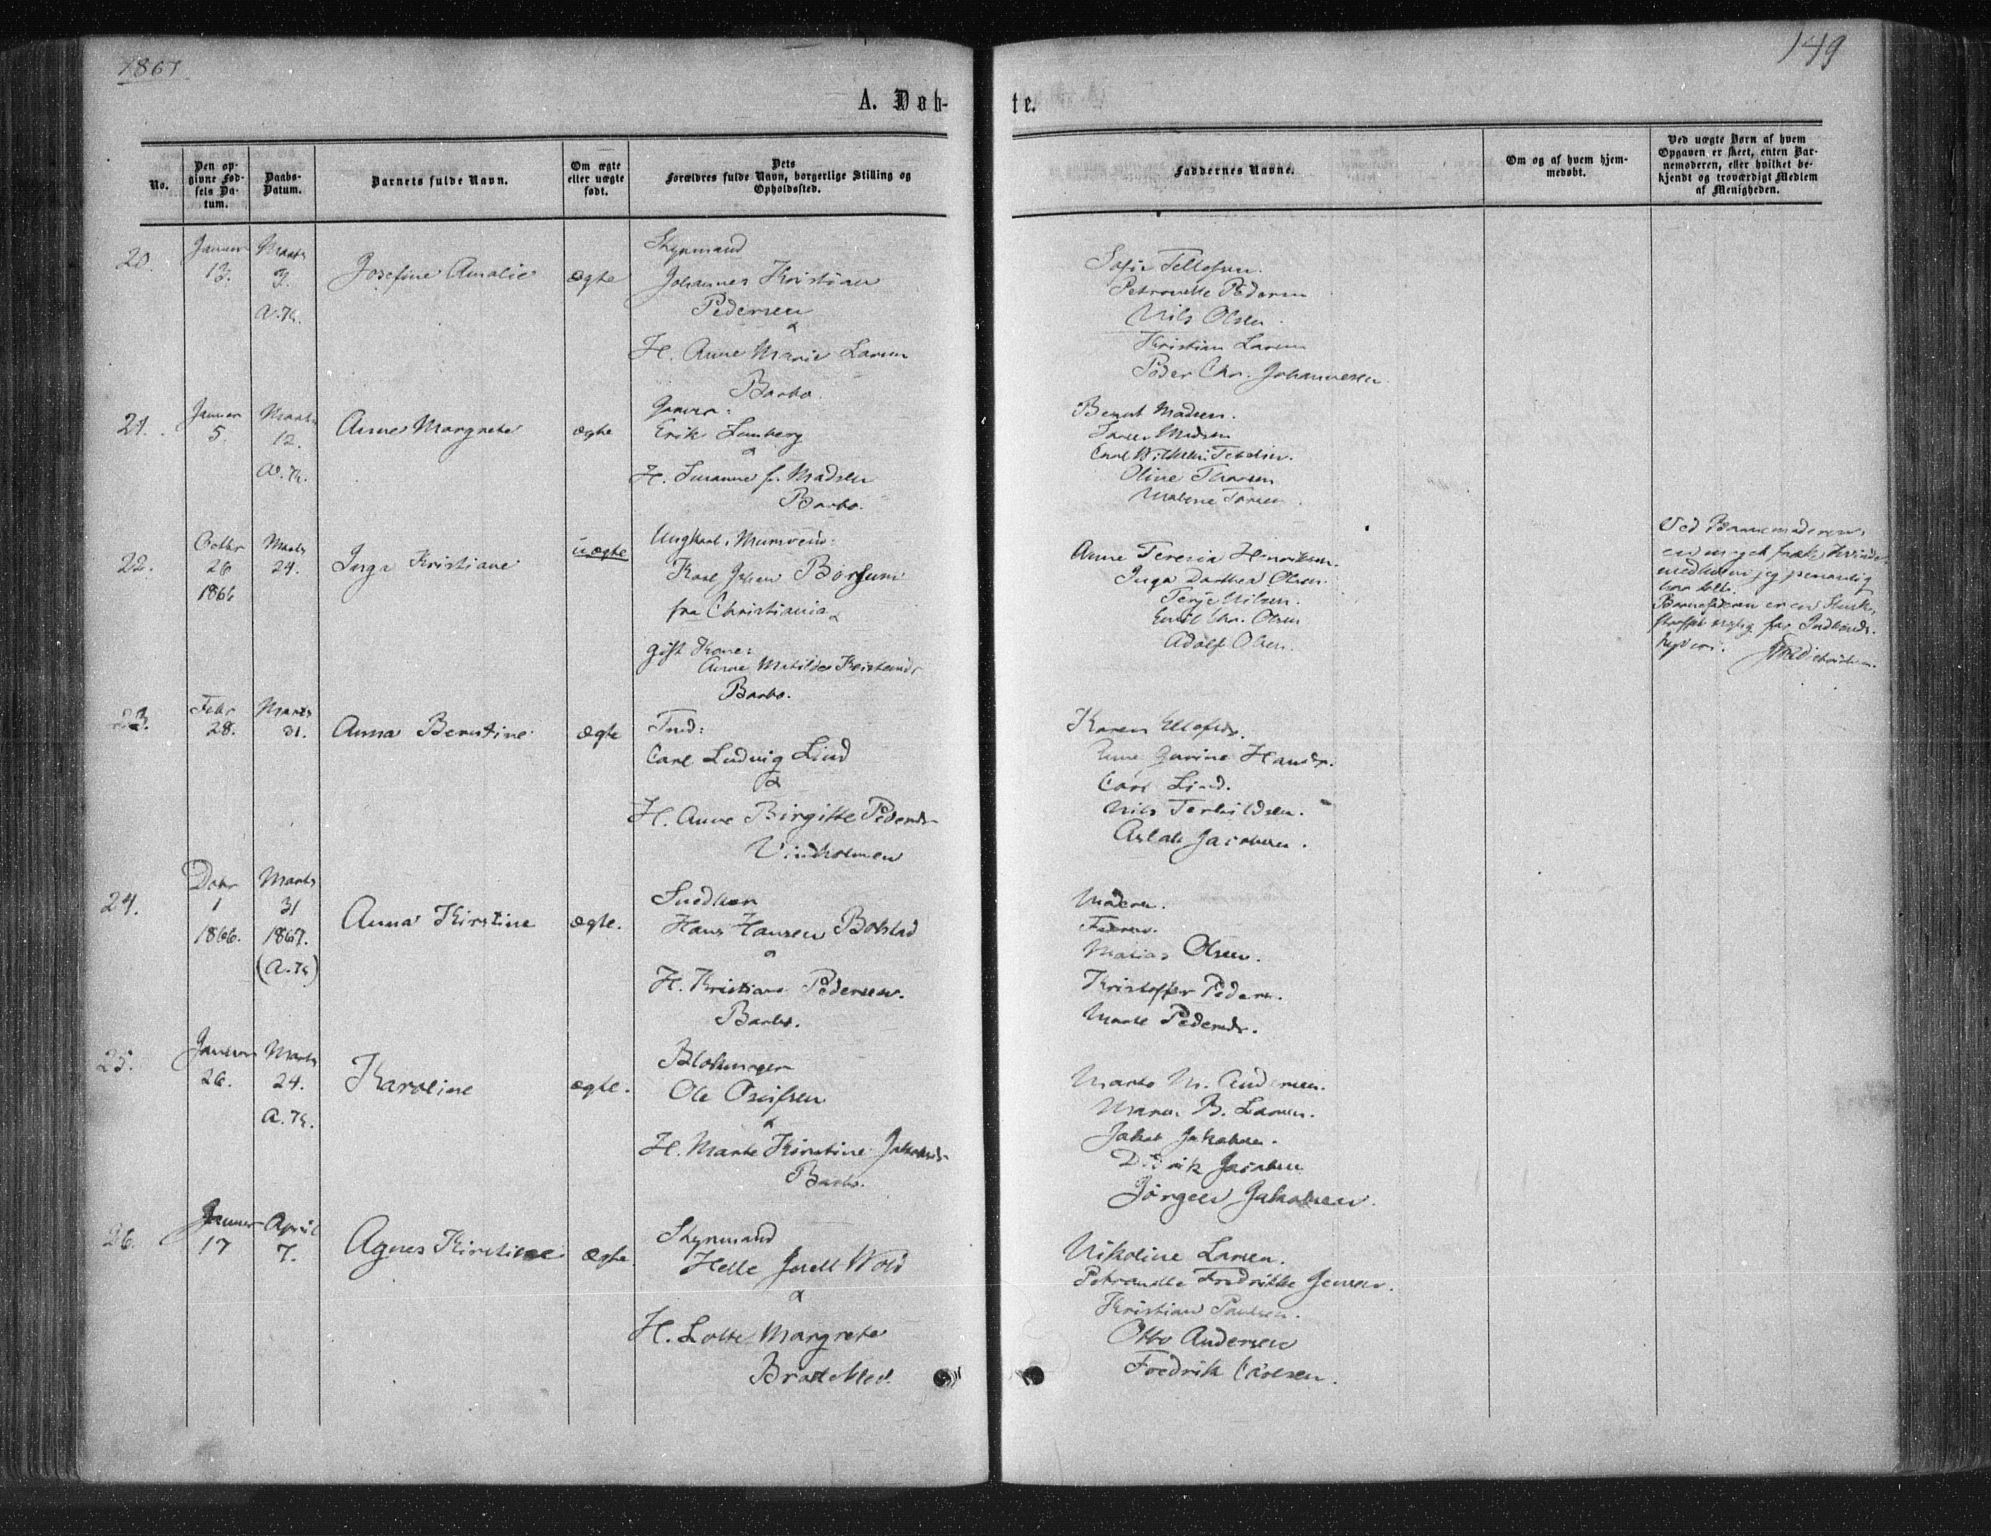 1867
149
A. Døb-
te.
No.
Den op-
givne Fød-
sels Da-
tum.
Daabs-
Datum.
Barnets fulde Navn.
Om ægte
eller uægte
født.
Dets
Forældres fulde Navn, borgerlige Stilling og
Opholdssted.
Faddernes Navne.
Om og af hvem hjem-
medøbt.
Ved uægte Børn af hvem
Opgaven er skeet, enten Bar-
nemoderen, eller hvilket be-
kjendt og troværdigt Medlem
af Menigheden.
20.
Januar
13.
Marts
3.
A.K.
Josefine Amalie
ægte
Styrmand
Johannes Kristian
Pedersen
&
H. Anne Marie Larsen
Barbo.
Sofie Tellefsen.
Petronelle Pedersen
Nils Olsen.
Kristian Larsen
Peder Chr. Johannesen.
21.
Januar
5.
Marts
12.
A.K.
Anne Margrete
ægte
Erik Lemberg
&
H. Susanne f. Madsen
Barbo.
Bernt Madsen.
Madsen
Carl Wilhelm
Oline
Malene
22.
Octbr
26
1866
Marts
24.
Inga Kristiane
uægte
Ungkarl, Mursvend:
Karl Johan Borsum
fra Christiania &
gift Kone:
Anne Matilde Kristensdr
Barbo.
Anne Teresia Henriksen.
Inga Dorthea Olsen.
Terje Nilsen.
Emil Chr. Olsen
Adolf Olsen.
Ved Barnemoderen,
en meget fræk Kvinde
med hvem jeg personlig
har talt.
Barnefaderen er en
for Indbruds-
tyveri.
23.
Febr
28.
Marts
31.
Anna Berntine
ægte
Tred:
Carl Ludvig Lind
&
H. Anne Birgitte Pedersdr
Vindholmen
Karen Ellefsdr.
Anne Gurine Hansdr.
Carl Lind.
Nils Terkildsen.
Aslak Jacobsen.
24.
Dcbr
1
1866.
Marts
31
1867.
(A.K)
Anna Kirstine
ægte.
Snedker
Hans Hansen Bolstad
&
H. Kristiane Pedersen.
Barbo.
Moderen.
Faderen.
Matias Olsen.
Kristoffer Peders.
Marte Pedersdr.
25.
Januar
26.
Marts
24.
A.K.
Karoline
ægte.
Blokmager
Ole Osufsen
&
H. Marte Kirstine Jakobsdr
Barbo.
Marte M. Andersen.
Maren B. Larsen.
Jakob Jakobsen.
Didrik Jacobsen
Jørgen Jakobsen.
26.
Januar
17
April
7.
Agnes Kirstine
ægte.
Styrmand
Helle Juell Wold
&
H. Lotte Margrete
Brækkested.
Nikoline Larsen.
Petronelle Fredrikke Jensen.
Kristian Paulsen.
Otto Andersen
Fredrik Carlsen.